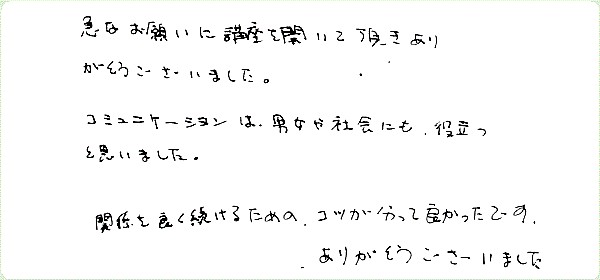 急なお願いに講座を開いて頂きあり
がとうございました。
コミュニケーションは、男女や社会にも、役立つ
と思いました。
関係を良く続けるための、コツが分って良かったです。
ありがとうございました